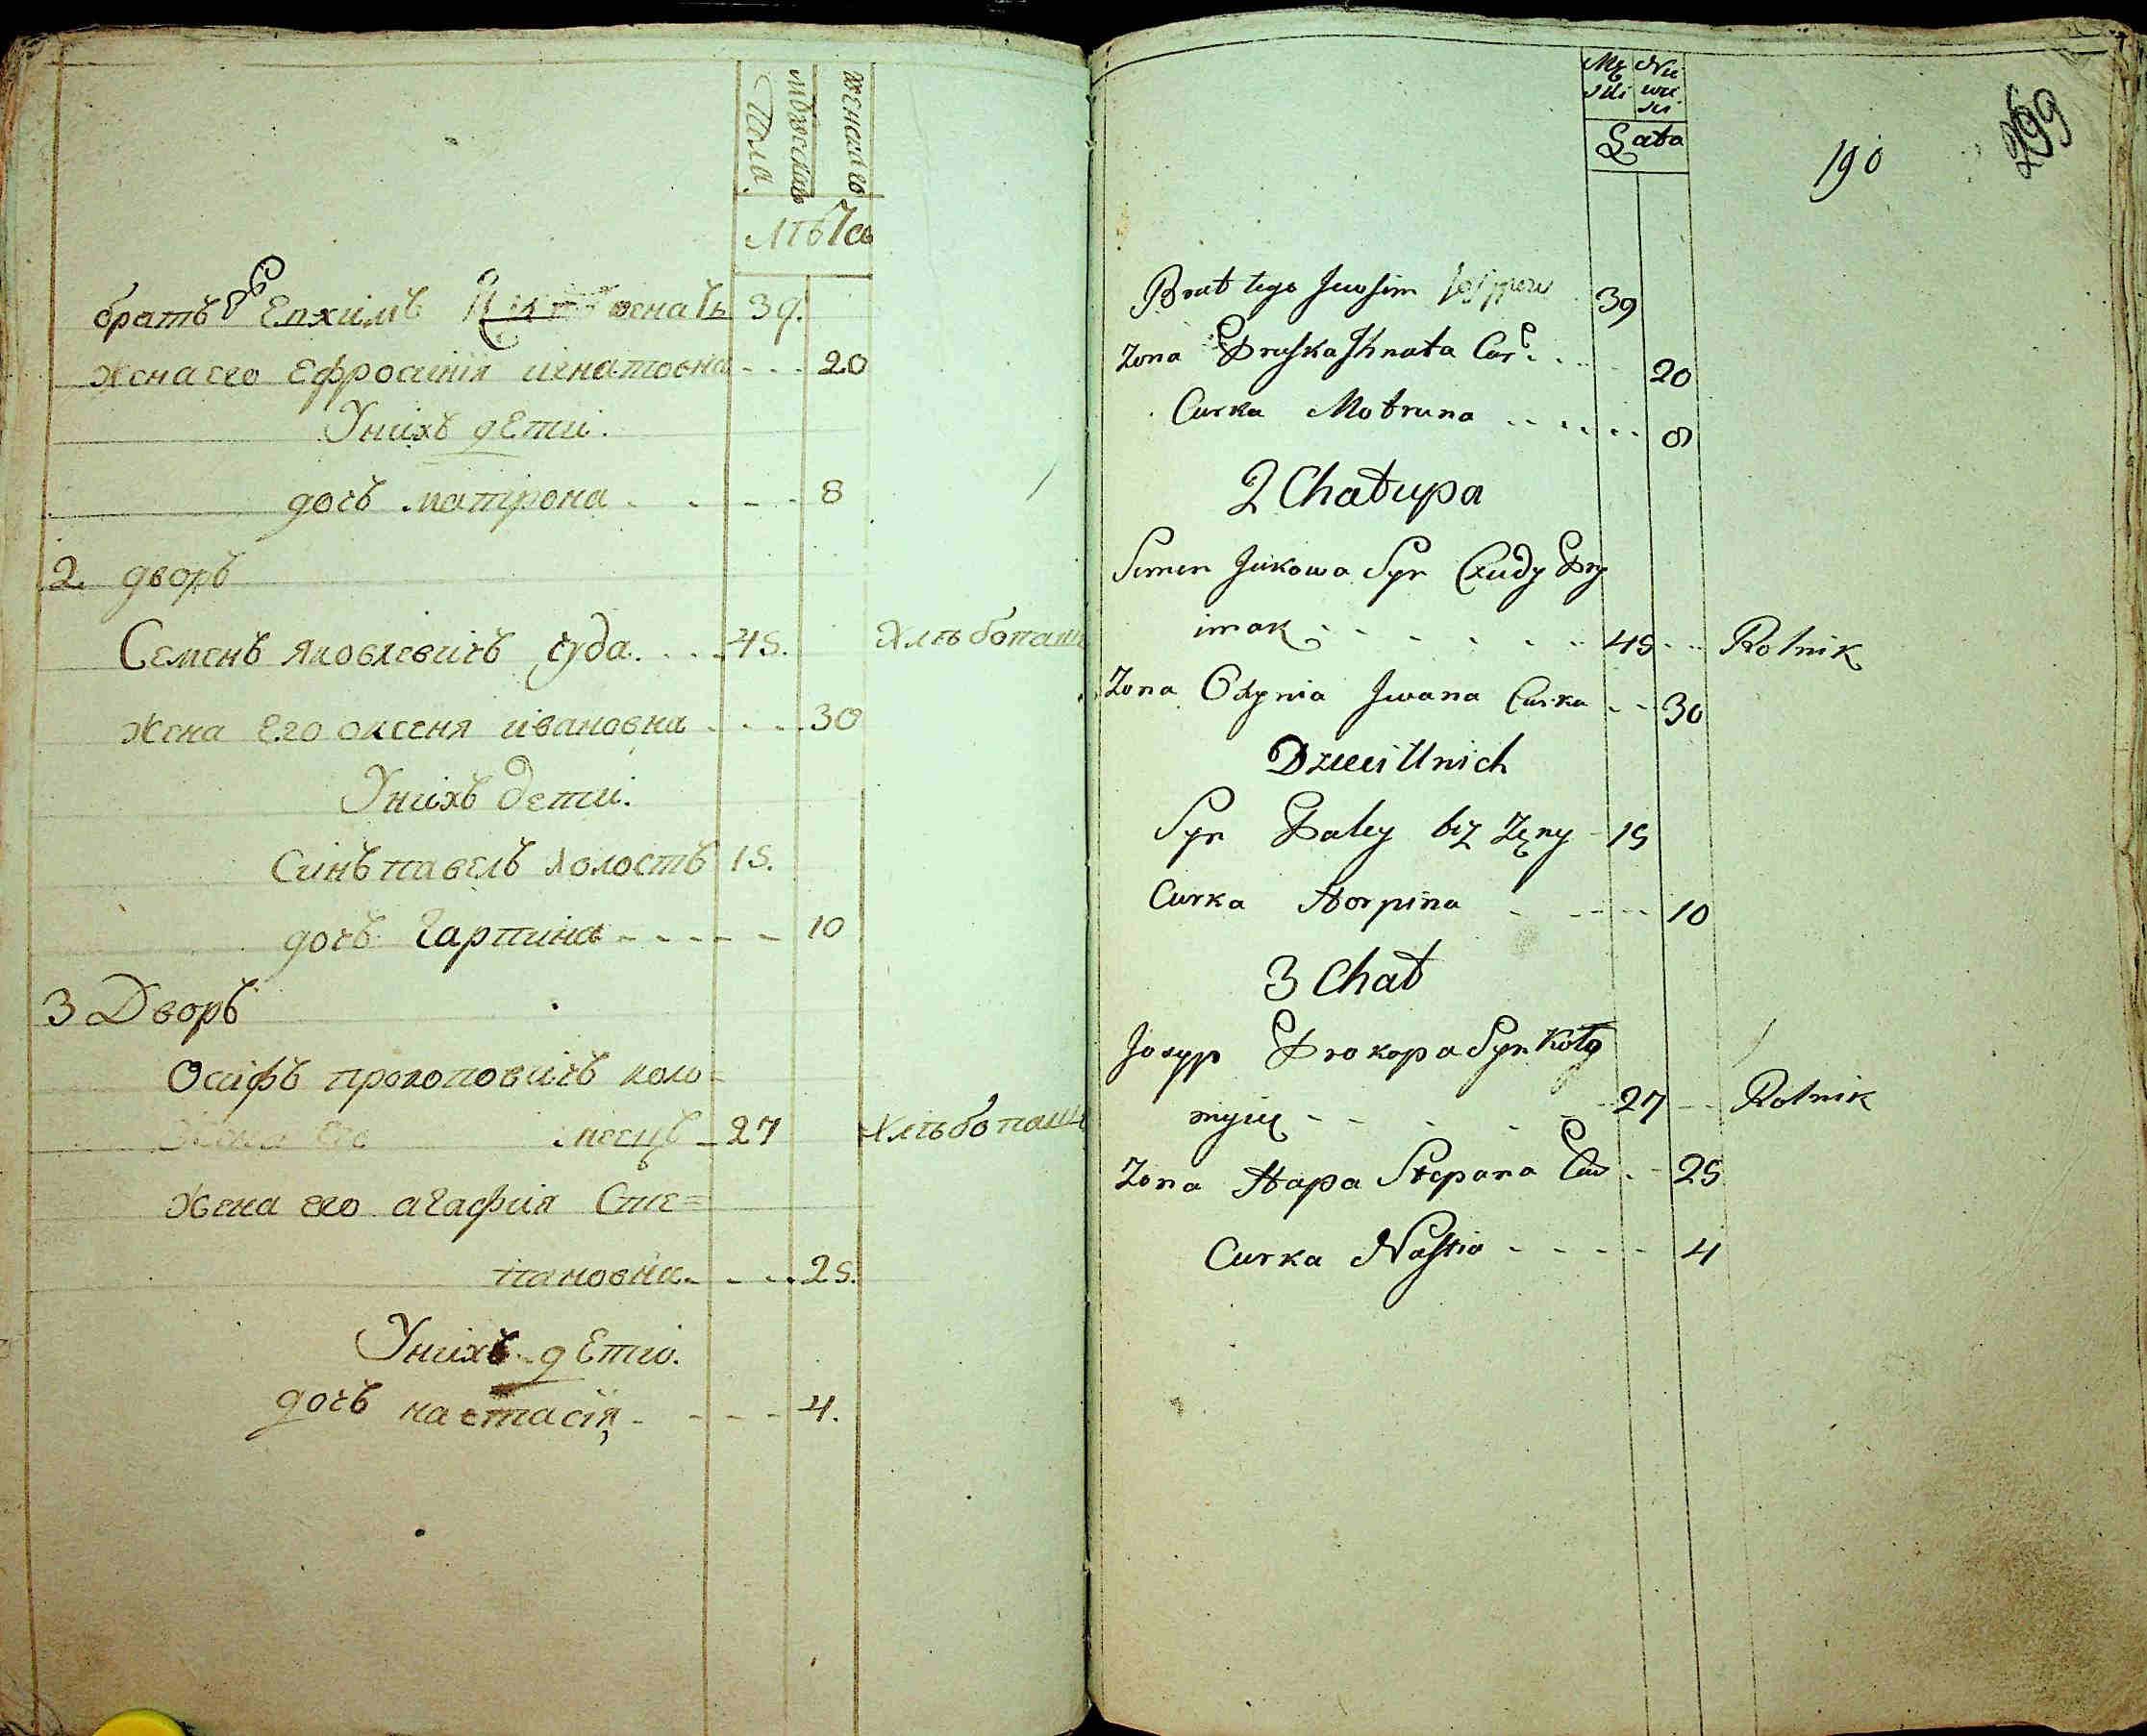 Пола
мужескаго
женскаго
лѣта
братъ его Епхимъ женатъ 39.
жена его Ефросинія игнатовна - - - 20
Унихъ дЕти.
дочъ матрона - - - - 8
2. дворъ
Семенъ яковлевичъ чуда. - - - 45. Хлѣбопаш
жена Его оксеня ивановна - - - - 30
Унихъ дети.
Синъ павелъ холостъ 15.
дочъ гарпина - - - - - 10
3 Дворъ
Осифъ прокоповичъ коло-
меецъ - 27 Хлѣбопаш
жена его агафия Сте=
пановна. - - - 25.
Унихъ дЕти.
дочъ настасія - - - - 4.
190
Mę
ski
Nie
wie
ści
Lata
Brat tego Jwosim 39
Zona Pruska Jhnata Cur - - - 20
Curka Motruna - - - - - 8
2 Chałupa
Semen Jakowa Syn Czudy Pry
imak - - - - - - 45 - - Rolnik
Zona Oxynia Jwana Curka - - 30
Dzieci Unich
Syn Pałey bez Zęny - 15
Curka Horpina - - - - 10
3 Chał
Josyp Prokopa Syn Koło
myiec - - - - - 27 - - Rolnik
Zona Hapa Stepana Cur - - 25
Curka Nastia - - - - - 4